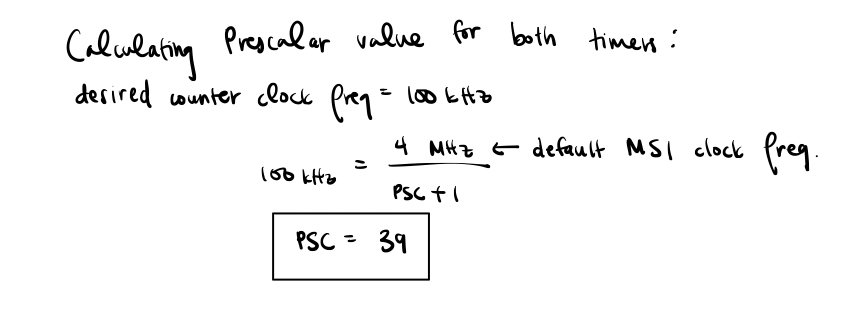 Calculating Prescalar value for both timers:
desired counter clock freq = 100 kHz
100 kHz = 4 MHz / PSC + 1 ← default MSI clock freq.
PSC = 39